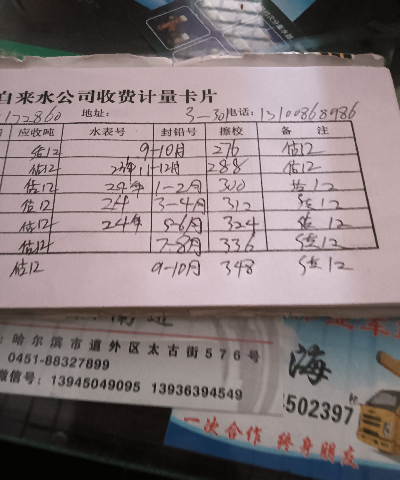 自来水公司收费计量卡片
172860 地址: 3-301 电话: 13100868986
应收吨 水表号 封铅号 擦校 备 注
估12 9-10月 276 估12
估12 23年 11-12月 288 估12
估12 24年 1-2月 300 估12
估12 24年 3-4月 312 估12
估12 24年 5-6月 324 估12
估12 7-8月 336 估12
估12 9-10月 348 估12
: 哈尔滨市道外区太古街576号
0451-88327899
微信号: 13945049095 13936394549
海
502397
一次合作 终身朋友